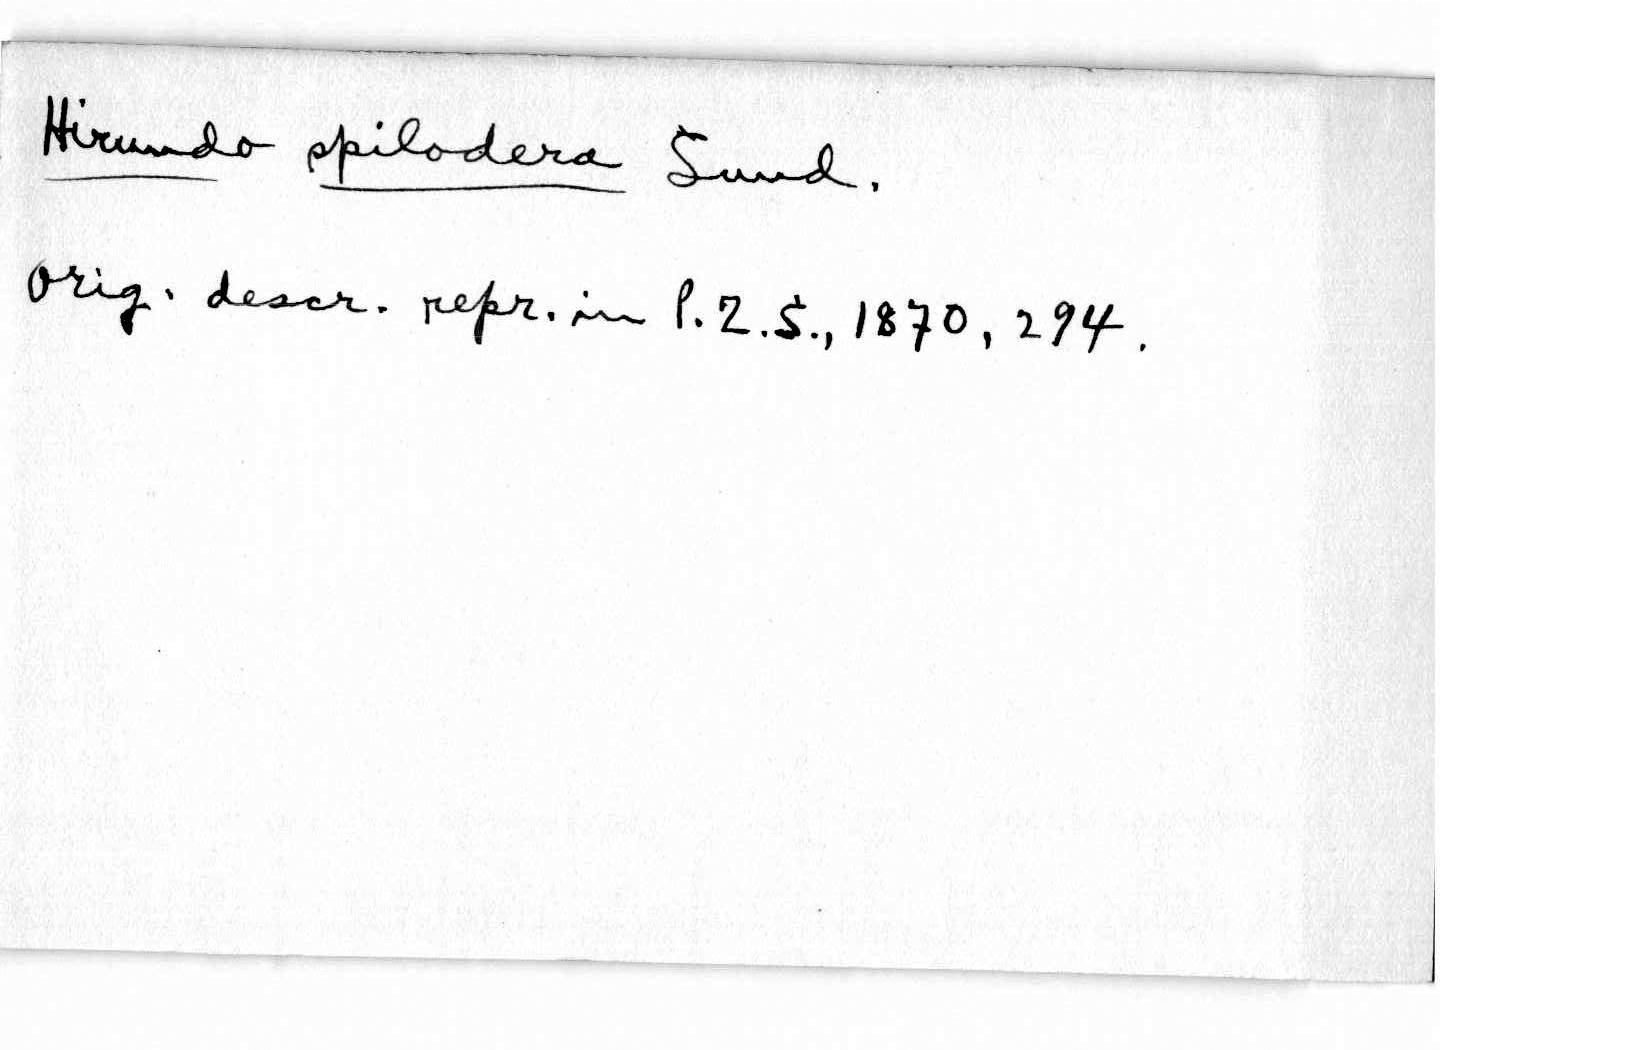 Hirundo spilodera Sund.
Orig. descr. repr. in P.Z.S., 1870, 294.